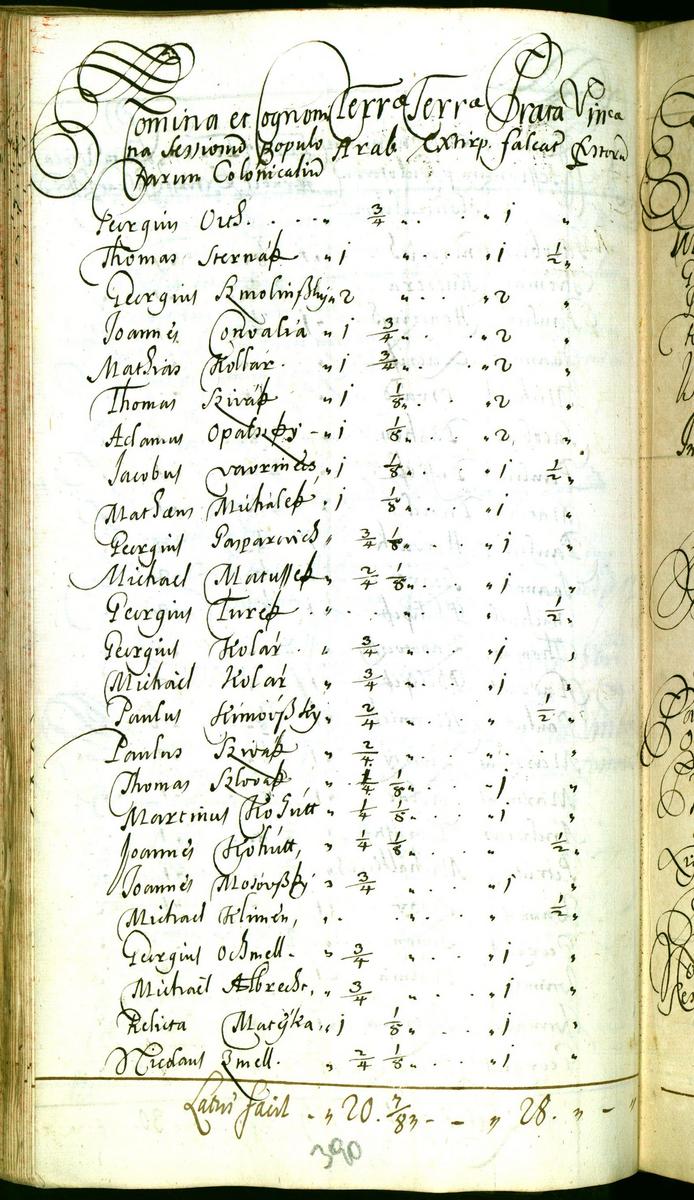 Nomina et Cognom Terræ Terræ Prata Vinea
na Sessionu Populo Arab Extirp. falcat Fostoru
rarum Colonicaliu
Georgius Orth. . . „ 3/4 „ . . „ 1 „
Thomas Sternák „ 1 „ . . „ 1 1/2 „
Georgius Smolinßky „ 2 „ . . „ 2 „
Joannes Convalia „ 1 3/4 „ . . „ 2 „
Mathias Kollár . „ 1 3/4 „ . . „ 2 „
Thomas Sivák „ 1 1/8 „ . . „ 2 „
Adamus Opalsky - „ 1 1/8 „ . . „ 2 „
Jacobus Vavrinecs „ 1 1/8 „ . . „ 1 1/2 „
Mathæus Michálek „ 1 1/8 „ . . „ 1 „
Georgius Gasparovich „ 3/4 1/8 „ . . „ 1 „
Michael Matussek „ 2/4 1/8 „ . . „ 1 „
Georgius Turek „ . . . „ 1/2 „
Georgius Kolár . „ 3/4 „ . . „ 1 „
Michael Kolár „ 3/4 „ . . „ 1 „
Paulus Simovßky „ 2/4 „ . . „ 1/2 „
Paulus Sivák „ 2/4 „ . . „ . „
Thomas Slovák „ 1/4 1/8 „ . . „ 1 „
Martinus Kohútt „ 1/4 1/8 „ . . „ 1 „
Joannes Kohútt, „ 1/4 1/8 „ . . „ 1/2 „
Joannes Mosovßký „ 3/4 „ . . „ 1 „
Michael Klimen, „ . „ . . „ 1/2 „
Georgius Ochmell . „ 3/4 „ . . „ 1 „
Michael Albrecht, „ 3/4 „ . . „ 1 „
Relicta Matÿka „ 1 1/8 „ . . „ 1 „
Nicolaus Zmell . „ 2/4 1/8 „ . . „ 1 „
Latus facit - „ 20. 7/8 „ - - „ 28. „ - „
390